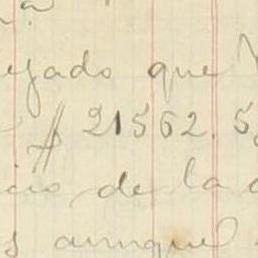 ejado que
$ 21562.5
cio de la
s aunque